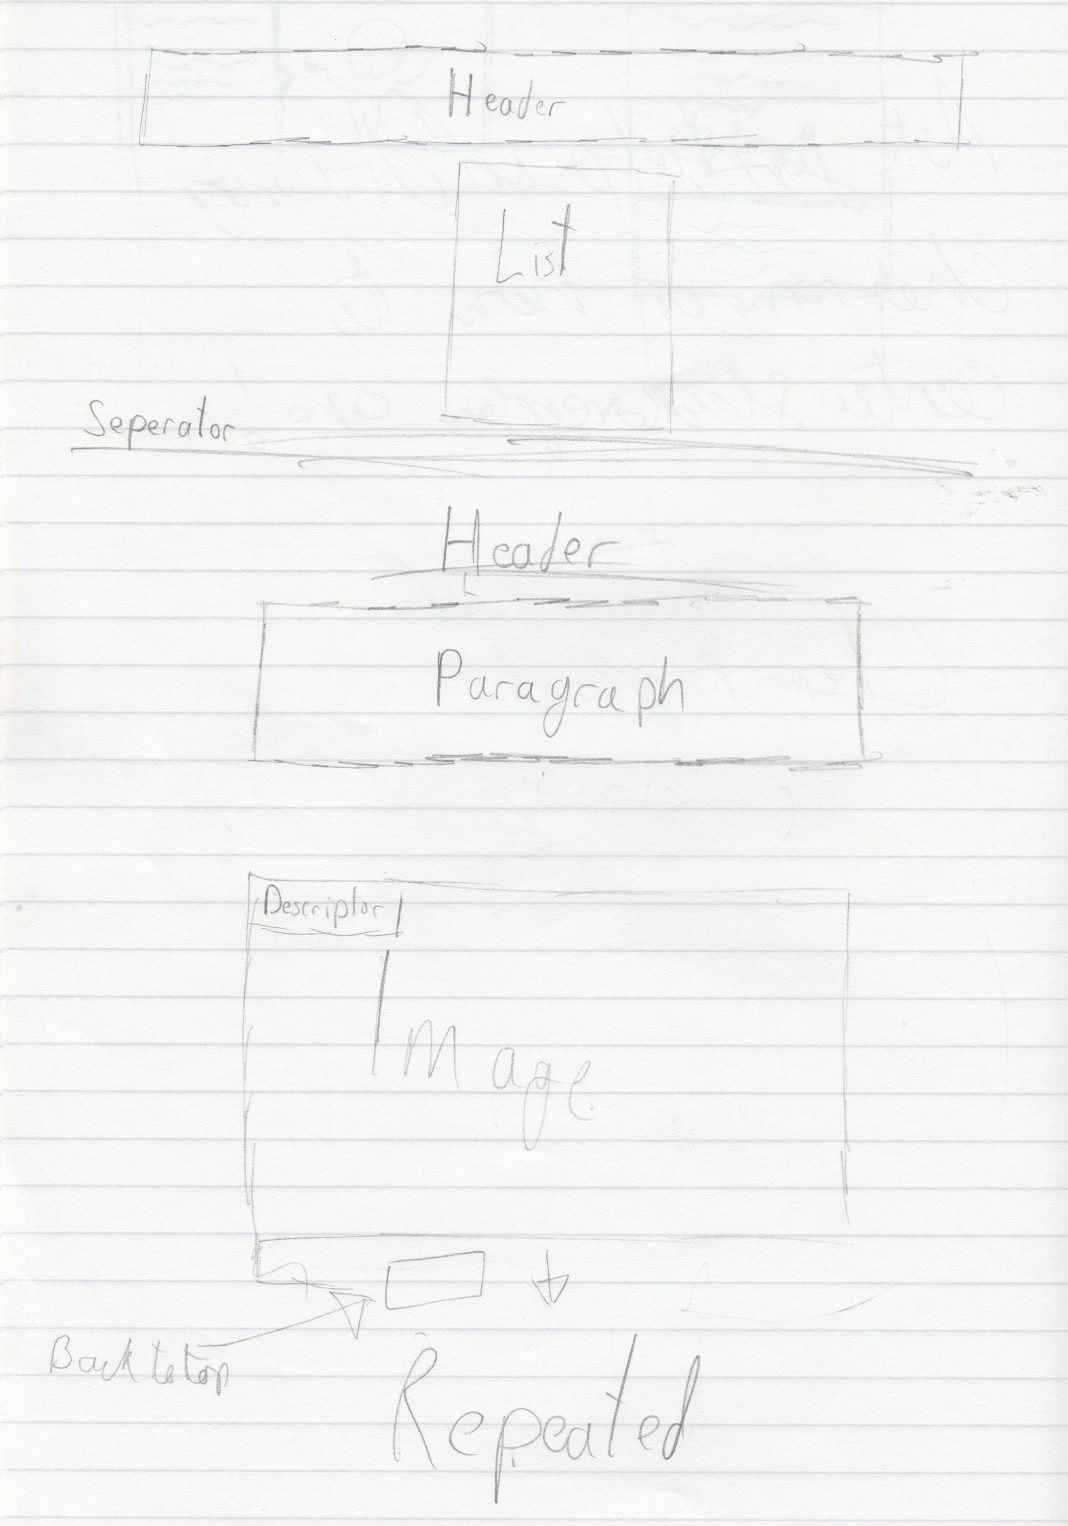 Header
List
Seperator
Header
Paragraph
Descriptor
Image
Back to top
Repeated